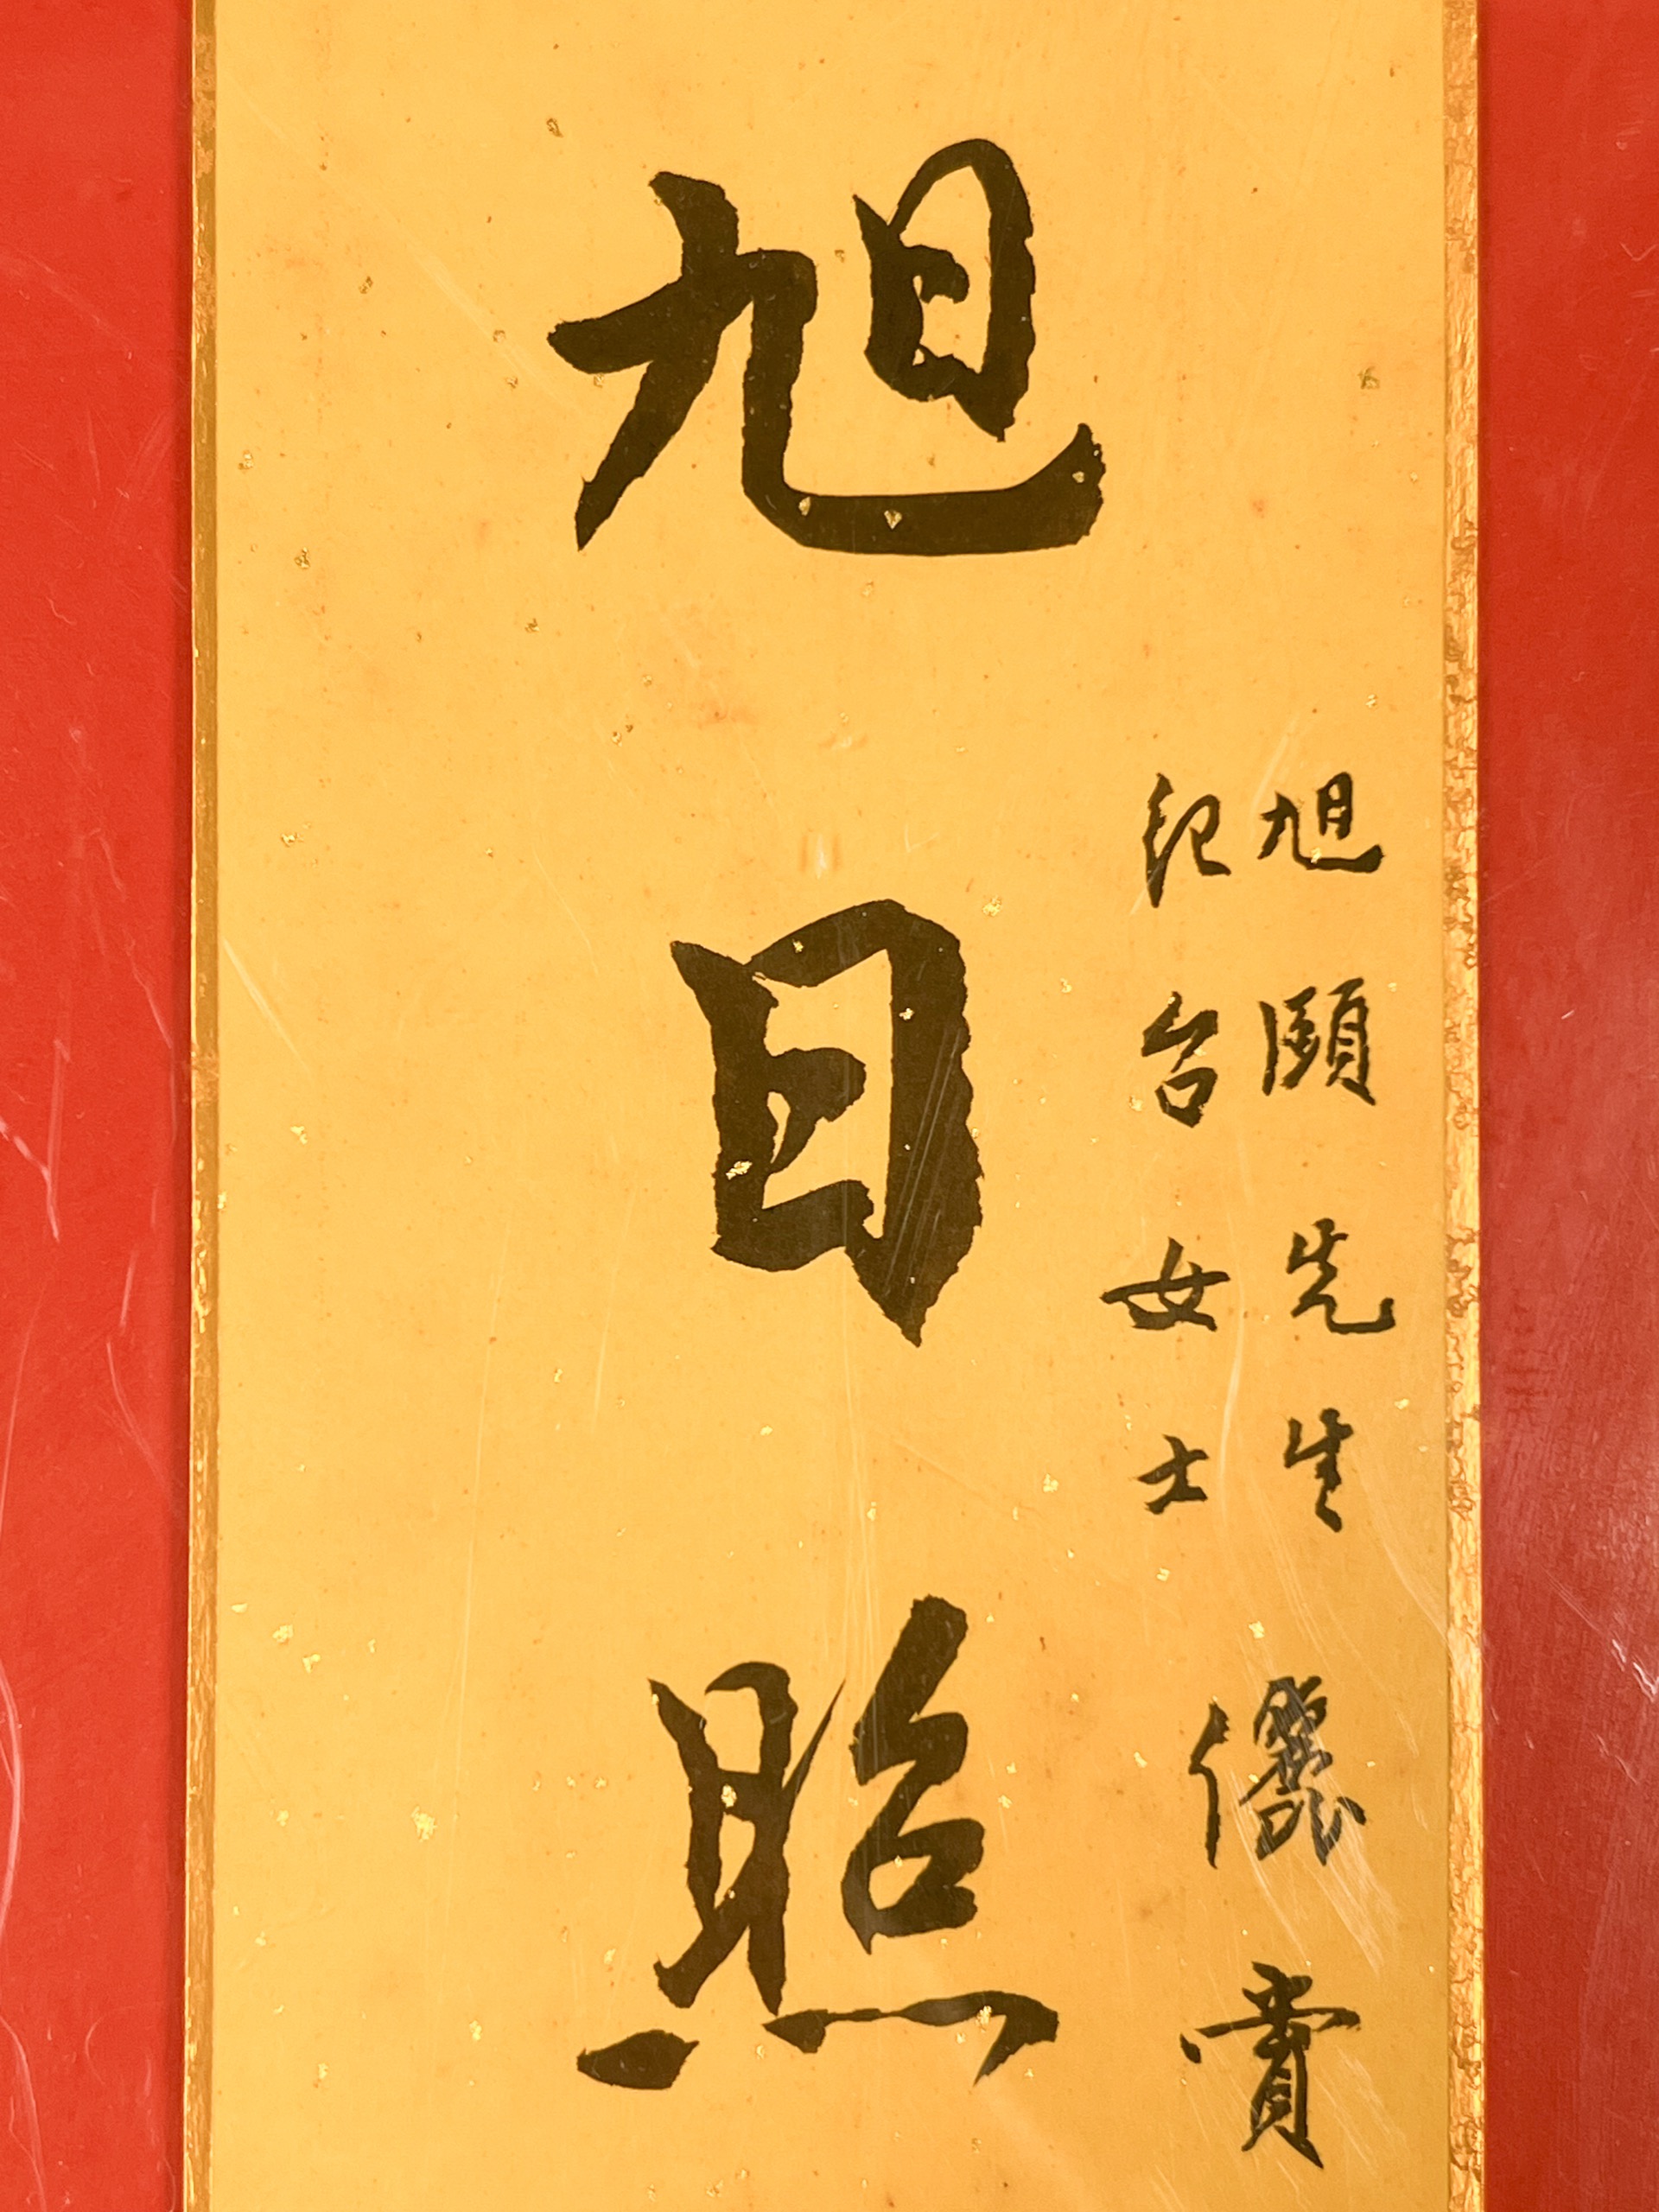 旭頤先生
紀台女士
儷賞
旭日照